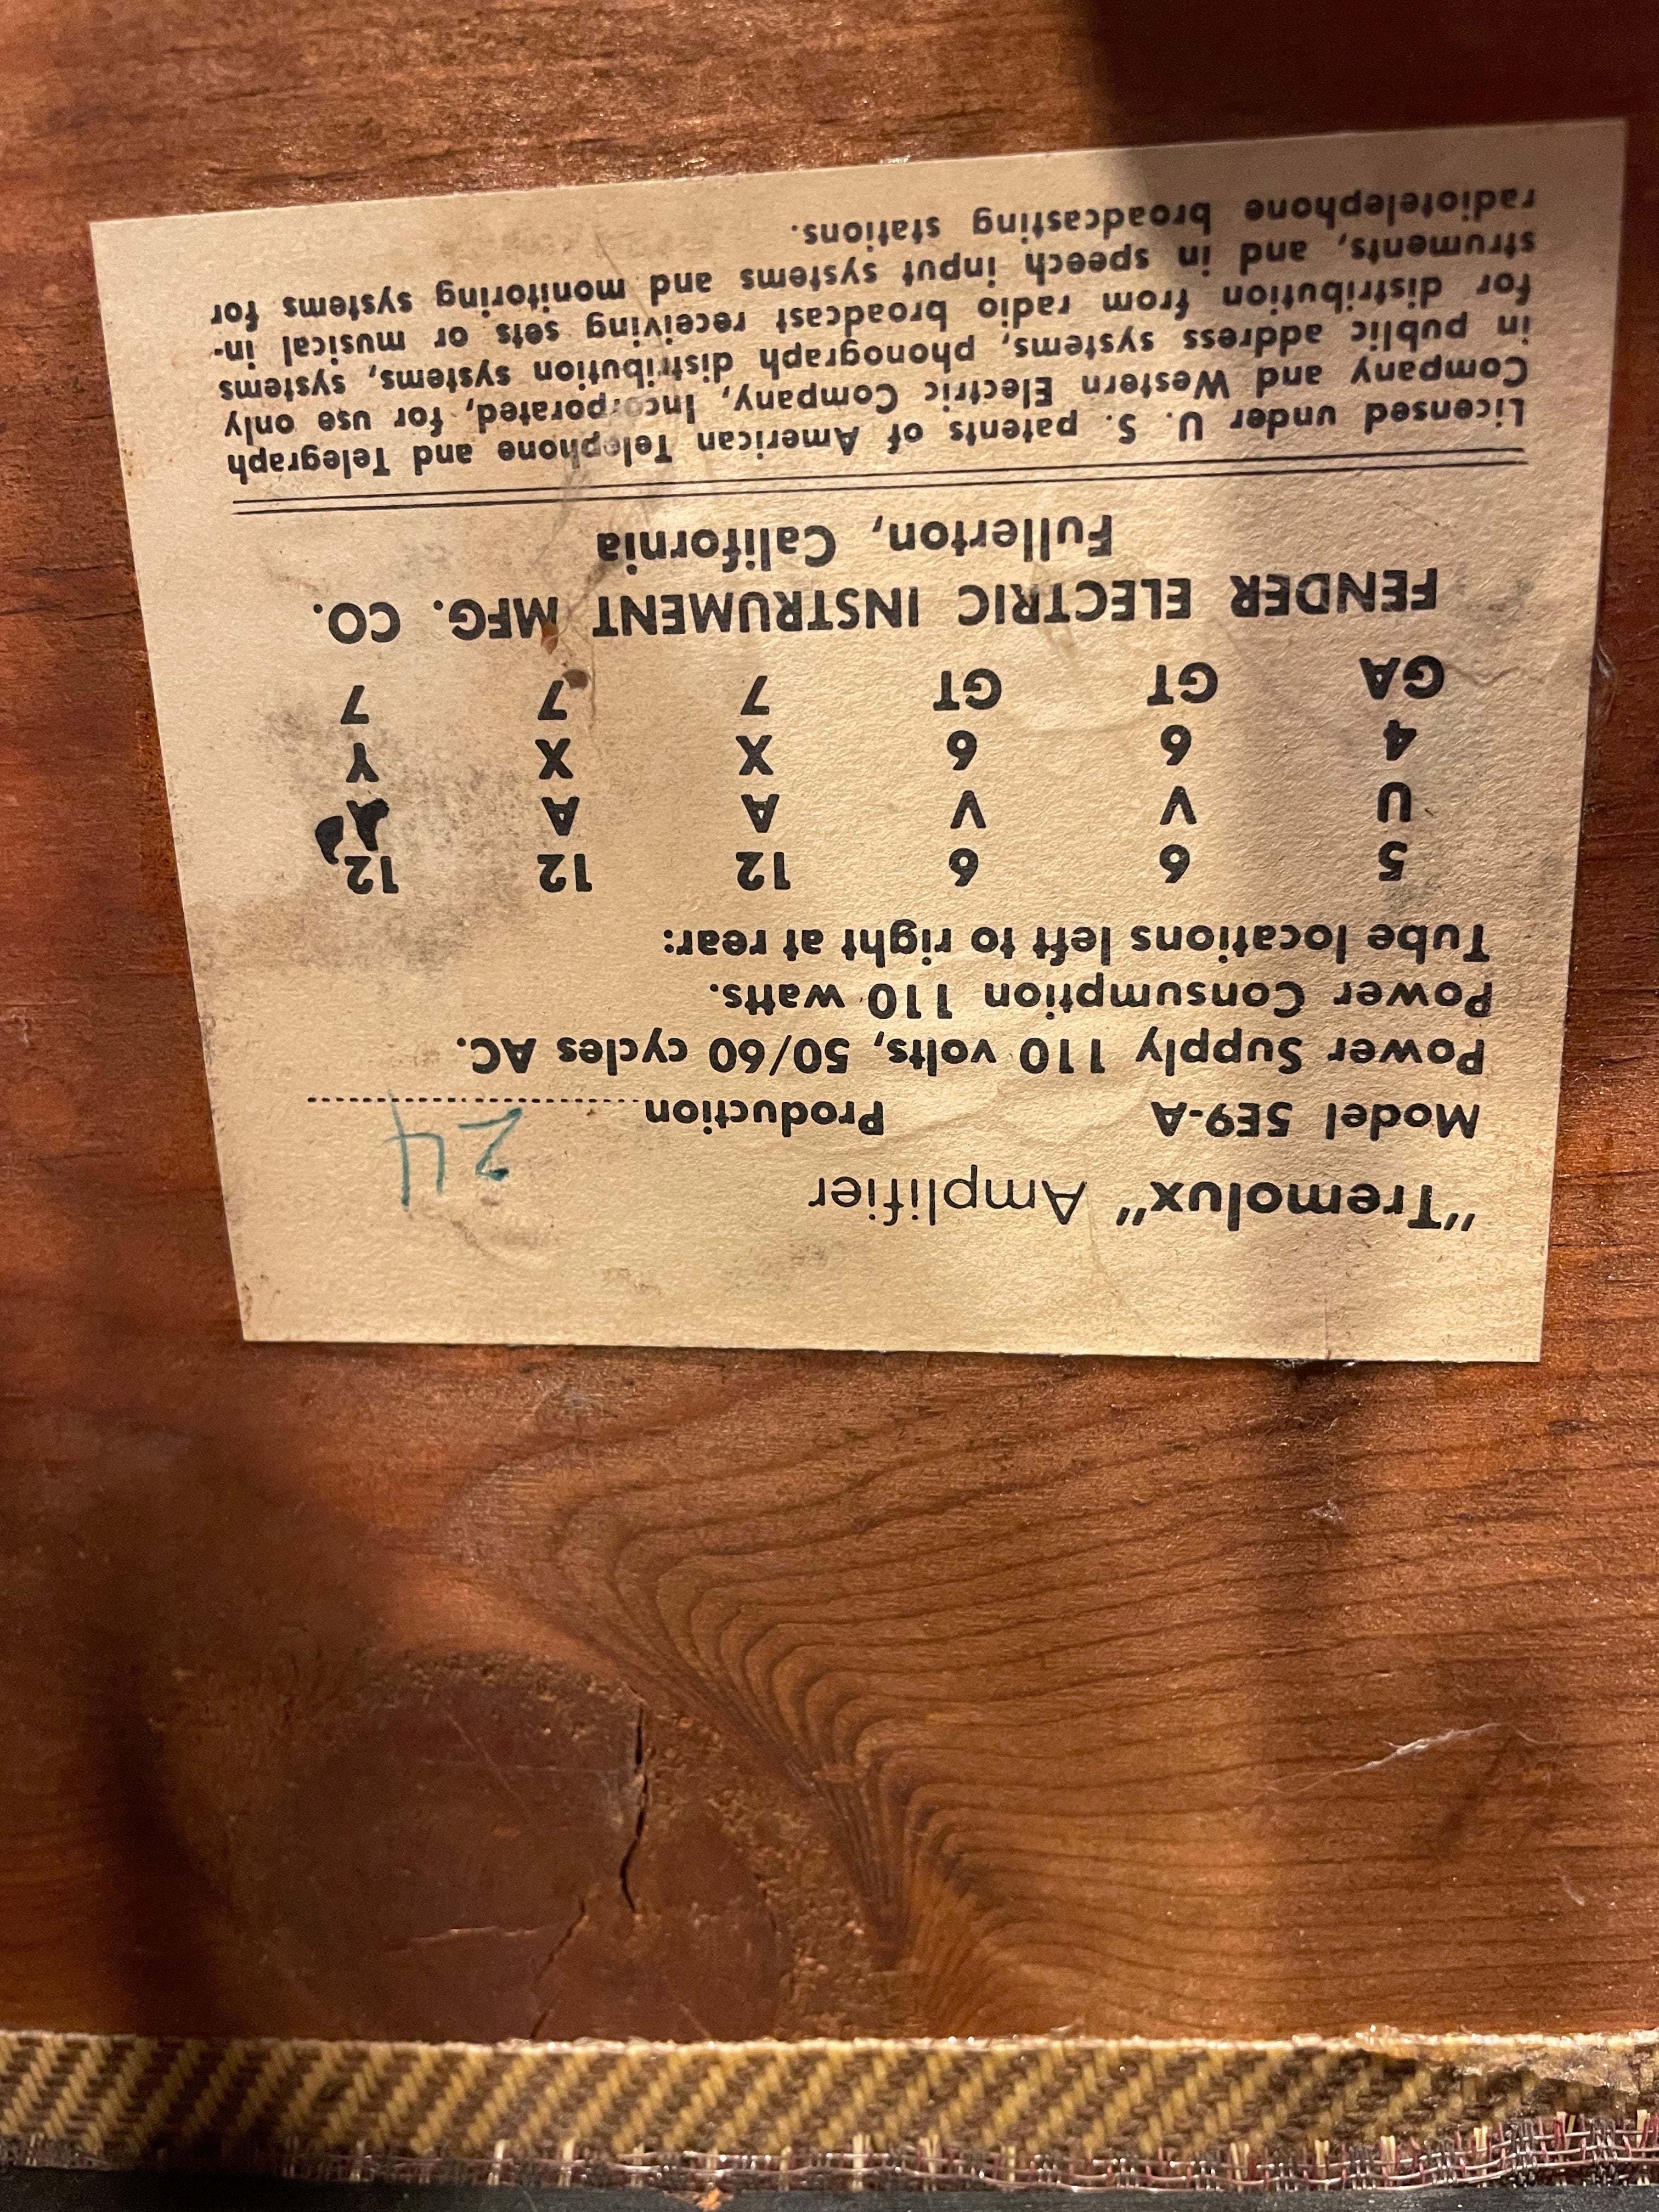 "Tremolux" Amplifier
Model 5E9-A Production 24
Power Supply 110 volts, 50/60 cycles AC.
Power Consumption 110 watts.
Tube locations left to right at rear:
5 6 6 12 12 12
U V V A A
4 6 6 X X Y
GA GT GT 7 7 7
FENDER ELECTRIC INSTRUMENT MFG. CO.
Fullerton, California
Licensed under U. S. patents of American Telephone and Telegraph
Company and Western Electric Company, Incorporated, for use only
in public address systems, phonograph distribution systems, systems
for distribution from radio broadcast receiving sets or musical in-
struments, and in speech input systems and monitoring systems for
radiotelephone broadcasting stations.